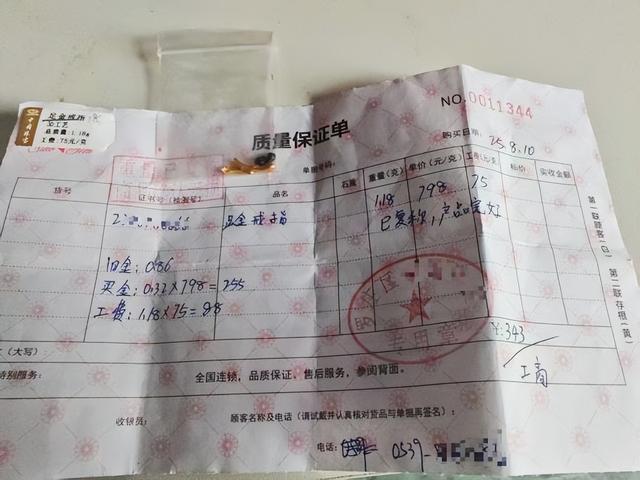 足金戒指
3D工艺
总质量:1.18g
工费:75元/克
中国珠宝
NO.0011344
质量保证单
购买日期: 25.8.10
单据号码:
货号
证书号(检测号)
品名
石重
重量(克)
单价(元/克)
工费(元/克)
标价
实收金额
足金戒指
1.18
798
75
已复称,产品完好
旧金:0.86
买金:0.32×798=255
工费:1.18×75=88
专用章
¥:343
(大写)
工商
特别服务:
全国连锁,品质保证、售后服务,参阅背面。
收银员:
顾客名称及电话(请试戴并认真核对货品与单据再签名):
电话:
0539-
第一联顾客(白) 第二联存根(黄)